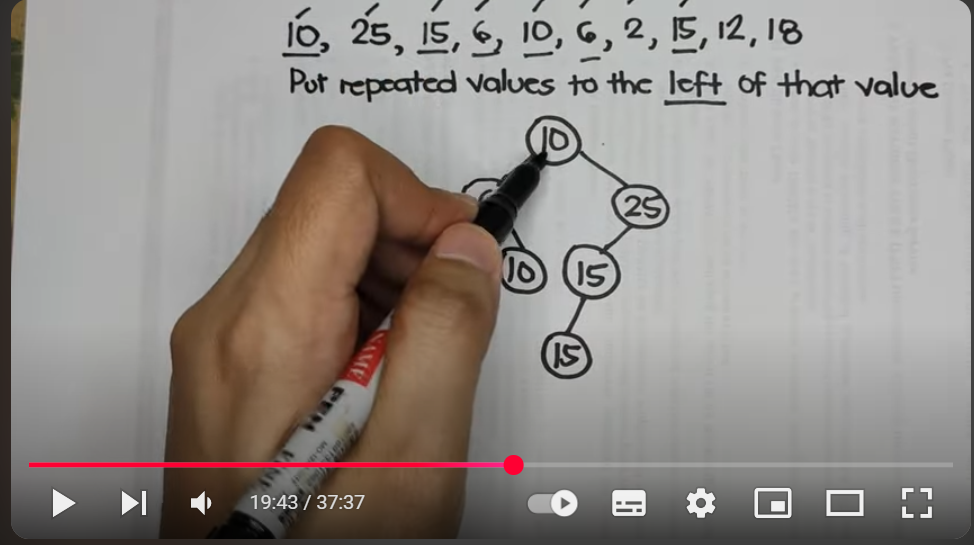 10, 25, 15, 6, 10, 6, 2, 15, 12, 18
Put repeated values to the left of that value
10
25
10 15
15
NAME
PEN
19:43 / 37:37